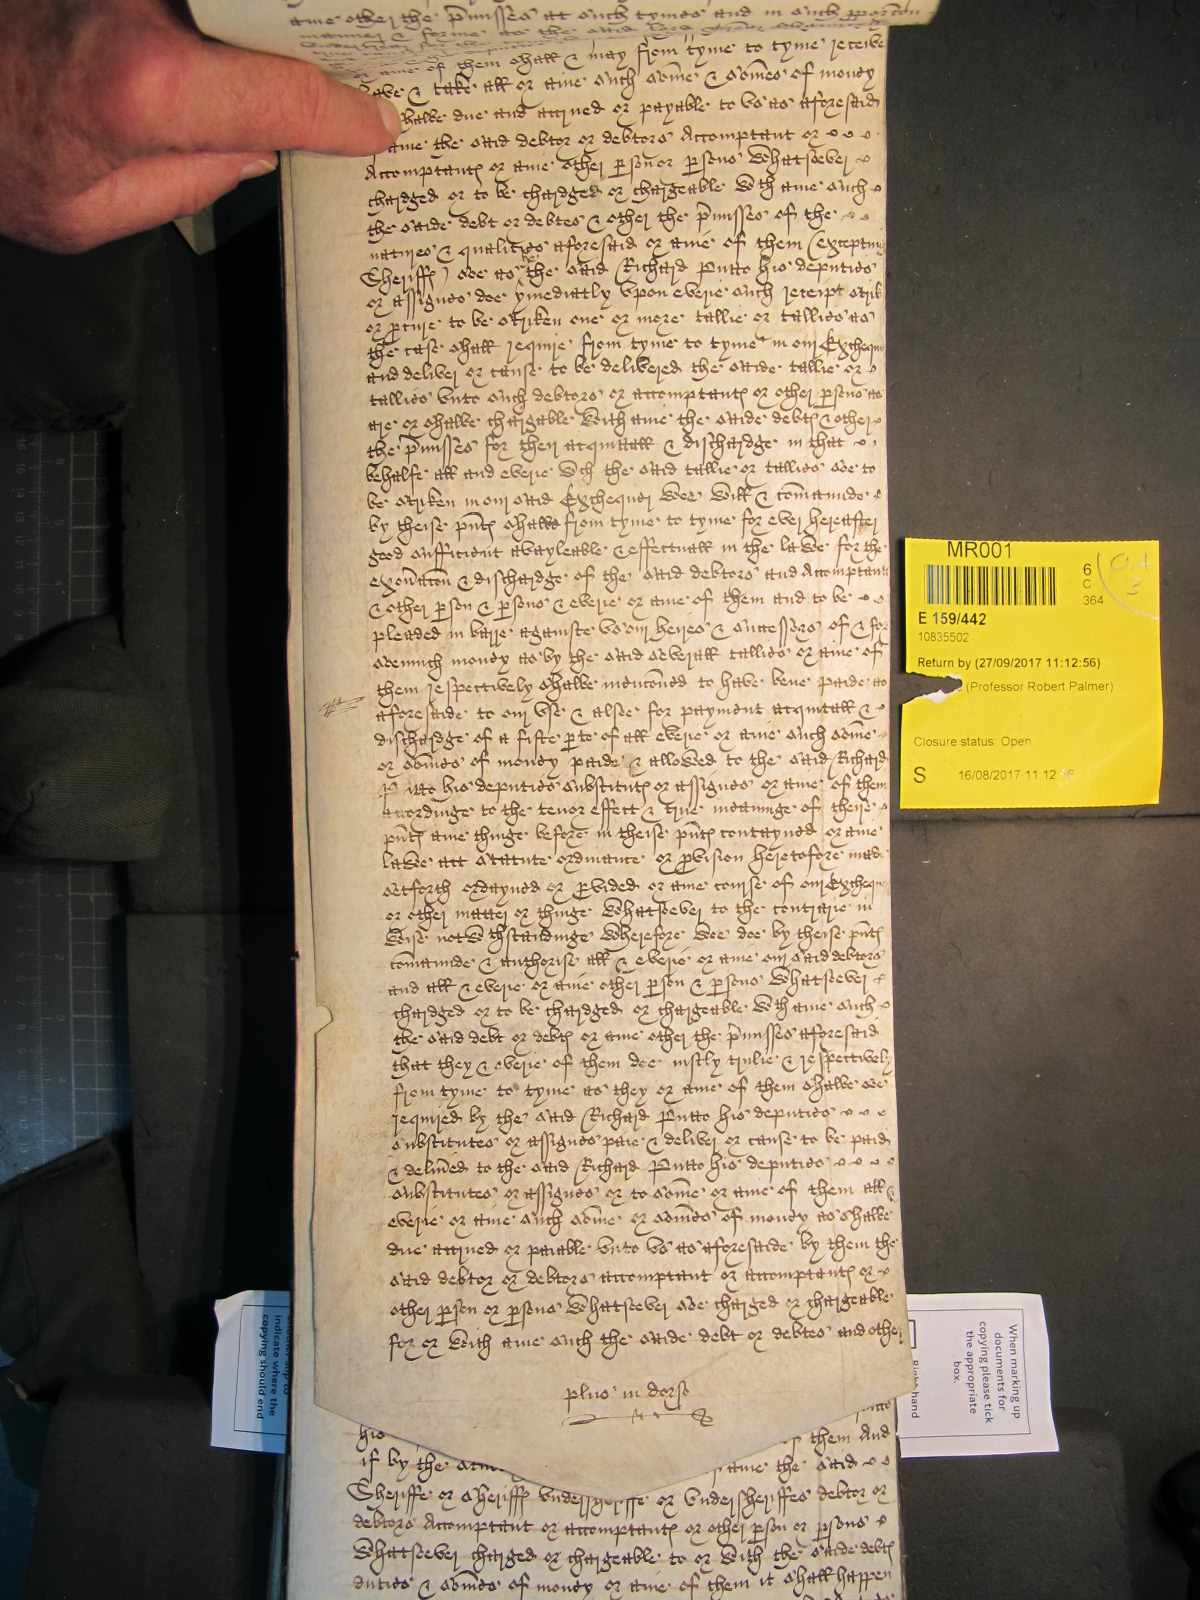 ame other the p̄misses at such tymes and in such pporcon
manner & forme as the said
or ame of them shall & may from tyme to tyme receive
have & take all or anie such some & somes of money
shalbe due and accrued or payable to vs as aforesaid
anie the said debtor or debtors Accomptant or
Accomptant or anie other pson or psons whatsoever
chardged or to be chardged or chargeable wth anie such
the saide debt or debtes & other the p̄misses of the
natures & qualities aforesaid or anie of them (exceptinge
Sheriff) soe as the said Richard Putto his deputies
or assignes doe ymediatly vpon everie such receipt strik
or pcure to be striken one or more tallie or tallies as
the case shall require from tyme to tyme in our Excheqr
and deliver or cause to be delivered the saide tallie or
tallies vnto such debtors or accomptant or other psons as
are or shalbe chargable with anie the saide debt & other
the p̄misses for their acquittall & dischardge in that
behalfe all and everie wch the said tallie or tallies soe to
be striken in our said Exchequer wee will & comaunde
by theise pnt shalbe from tyme to tyme for ever hereafter
good sufficient avayleable & effectuall in the lawe for the
exon̄acon & dischardge of the said debtors and Accomptant
& other pson & psons & everie or anie of them and to be
pleaded in barre againste vs our heires & successors of & for
soemuch money as by the said severall tallies or anie of
them respectively shalbe menconed to have bene paide as
aforesaide to our vse & alsoe for payment acquitall &
dischardge of a fifte pte of all everie or anie such some
or somes of money paide & allowed to the said Richard
Putto his deputies substitut or assignes or anie of them
accordinge to the tenor effect & true meaninge of theise
pnt anie thinge before in theise pnt contayned or anie
lawe act statute ordinance or pvision heretofore made
setforth ordayned or pvided or anie course of our Excheqr
or other matter or thinge whatsoever to the contrarie in
wise notwthstandinge Wherefore wee doe by theise pnt
comaunde & authorise all & everie or anie our said debtors
and all & everie or anie other pson & psons whatsoever
chardged or to be chardged or chargeable wth anie such
the said debt or debt or anie other the p̄misses aforesaid
that they & everie of them doe iustly trulie & respectively
from tyme to tyme as they or anie of them shalbe soe
required by the said Richard Putto his deputies
substitutes or assignes paie & deliver or cause to be paid
& delived to the said Richard Putto his deputies
substitutes or assignes or to some or anie of them all &
everie or anie such some or somes of money as shalbe
due accrued or paiable vnto vs as aforesaide by them the
said debtor or debtors accomptant or accomptant or
other pson or psons whatsoever soe charged or chargeable
for or with anie such the saide debt or debtes and other
plus in dorso
his
of them And
if by the
anie the said
Sheriffe or sheriff vndersheriffe or vndersheriffes debtor or
debtors Accomptant or accomptant or other pson or psons
whatsoever charged or chargeable to or with the saide debt
duties & somes of money or anie of them it shall happen
MR001
6
C
364
E 159/442
10835502
Return by (27/09/2017 11:12:56)
(Professor Robert Palmer)
Closure status: Open
S 16/08/2017 11:12
indicate where the
copying should end
When marking up
documents for
copying please tick
the appropriate
box.
hand